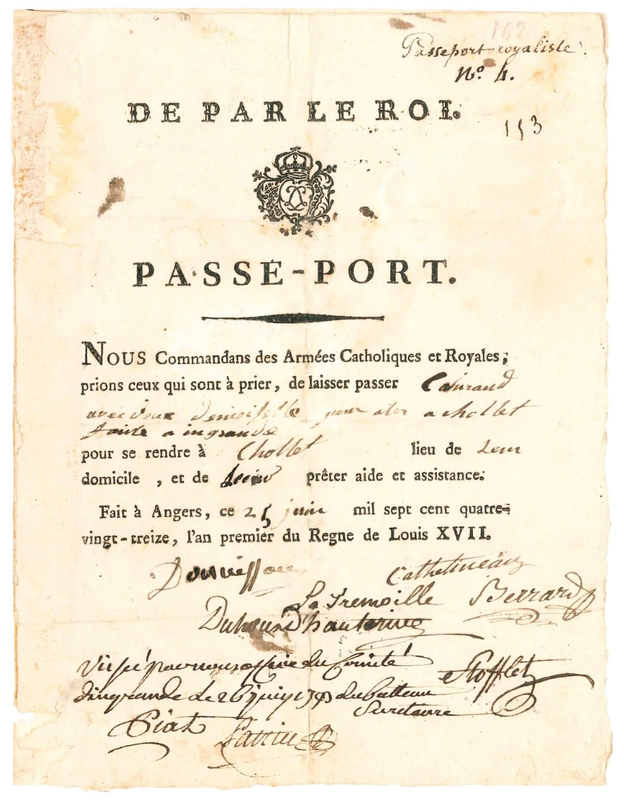 162
Passeport royaliste.
N.º 4.
DE PAR LE ROI.
153
PASSE-PORT.
NOUS Commandans des Armées Catholiques et Royales;
prions ceux qui sont à prier, de laisser passer
avec deux demoiselle pour aler a chollet
a ingrande
pour se rendre à Chollet lieu de Leur
domicile , et de prêter aide et assistance.
Fait à Angers, ce 25 juin mil sept cent quatre-
vingt-treize, l'an premier du Regne de Louis XVII.
Donnissan Cathelineau
La Tremoille Berrard
Duhoux D'hauterive
Stofflet
du Comité
dingrande Le 26 juin 1793
Secretaire
Piat